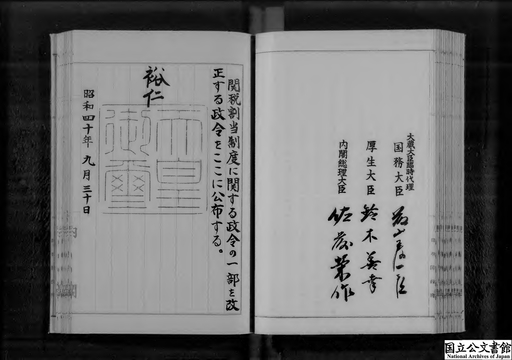 関税割当制度に関する政令の一部を改
正する政令をここに公布する。
裕仁
天皇
御璽
昭和四十年九月三十日
内閣総理大臣 佐藤榮作
厚生大臣 鈴木善幸
大蔵大臣臨時代理
国務大臣
国立公文書館
National Archives of Japan